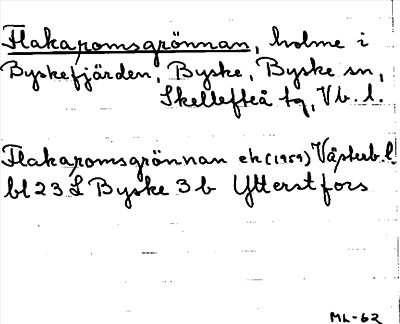 Flakaromsgrönnan, holme i
Byskefjärden, Byske, Byske sn,
Skellefteå tg, Vb. l.
Flakaromsgrönnan ek (1959) Västerb. l.
bl 23 L Byske 3 b Ytterstfors
ML-62